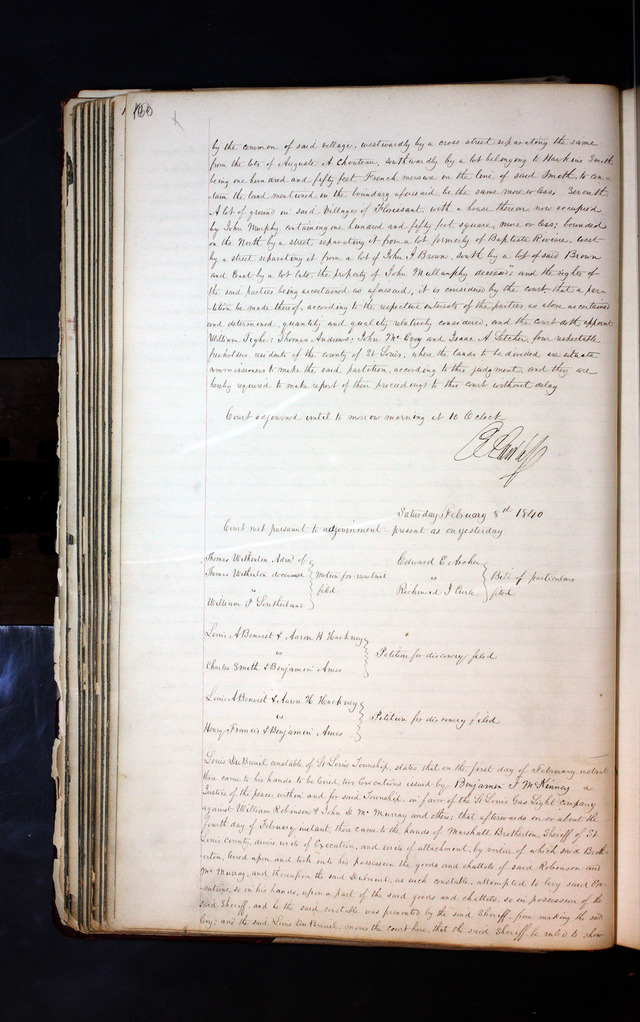 100
by the common of said village, westwardly by a cross street separating the same
from the lots of Auguste A Chouteau, Southwardly by a lot belonging to Hawkins Smith
being one hundred and fifty feet French measure on the line of said Smith, to con-
tain the land mentioned in the boundary aforesaid be the same more or less. Seventh
A lot of ground in said Village of Florissant, with a house thereon now occupied
by John Murphy, containing one hundred and fifty feet square, more or less; bounded
on the North by a street separating it from a lot formerly of Baptiste Riviere, west
by a street separating it from a lot of John I Brown, South by a lot of said Brown
and East by a lot late the property of John Mullanphy deceased; and the rights of
the said parties being ascertained as aforesaid, it is considered by the court that a par-
tition be made thereof, according to the respective interests of the parties as above ascertained
and determined, quantity and quality relatively considered, and the court doth appoint
William Tighe; Thomas Andrews; John Mc Evoy and Isaac A Letcher, four respectable
freeholders residents of the county of St Louis, where the lands to be divided are situate
commissioners to make the said partition, according to this judgment, and they are
hereby required to make report of their proceedings to this court without delay
Court adjourned until to morrow morning at 10 O'clock
Saturday February 8th 1840
Court met pursuant to adjournment present as on yesterday
Thomas Witherton Admr of
Thomas Witherton deceased
vs
William P Southerland
Motion for new trial
filed
Edward E Archer
vs
Richmond J Curle
Bill of particulars
filed
Louis A Benoist & Aaron H Hackney
vs
Charles Smith & Benjamin Ames
Petition for discovery filed
Louis A Benoist & Aaron H Hackney
vs
Henry Francis & Benjamin Ames
Petition for discovery filed
Louis DuBreuil constable of St Louis Township, states that on the first day of February instant
there came to his hands to be levied, two Executions issued by Benjamin J McKinney a
Justice of the peace, within and for said Township, in favor of the St Louis Gas Light company
against William Robinson & John Mc Murray and others; that afterwards on or about the
fourth day of February instant, there came to the hands of Marshall Brotherton, Sheriff of St
Louis County, divers writs of Execution, and writs of attachment, by virtue of which said Broth-
erton, levied upon and took into his possession the goods and chattels of said Robinson and
Mc Murray, and thereupon the said DuBreuil, as such constable, attempted to levy said Ex-
ecutions, so in his hands, upon a part of the said goods and chattels, so in possession of the
said Sheriff, and he the said constable was prevented by the said Sheriff, from making the said
levy; and the said Louis DuBreuil moves the court here, that the said Sheriff, be ruled to show